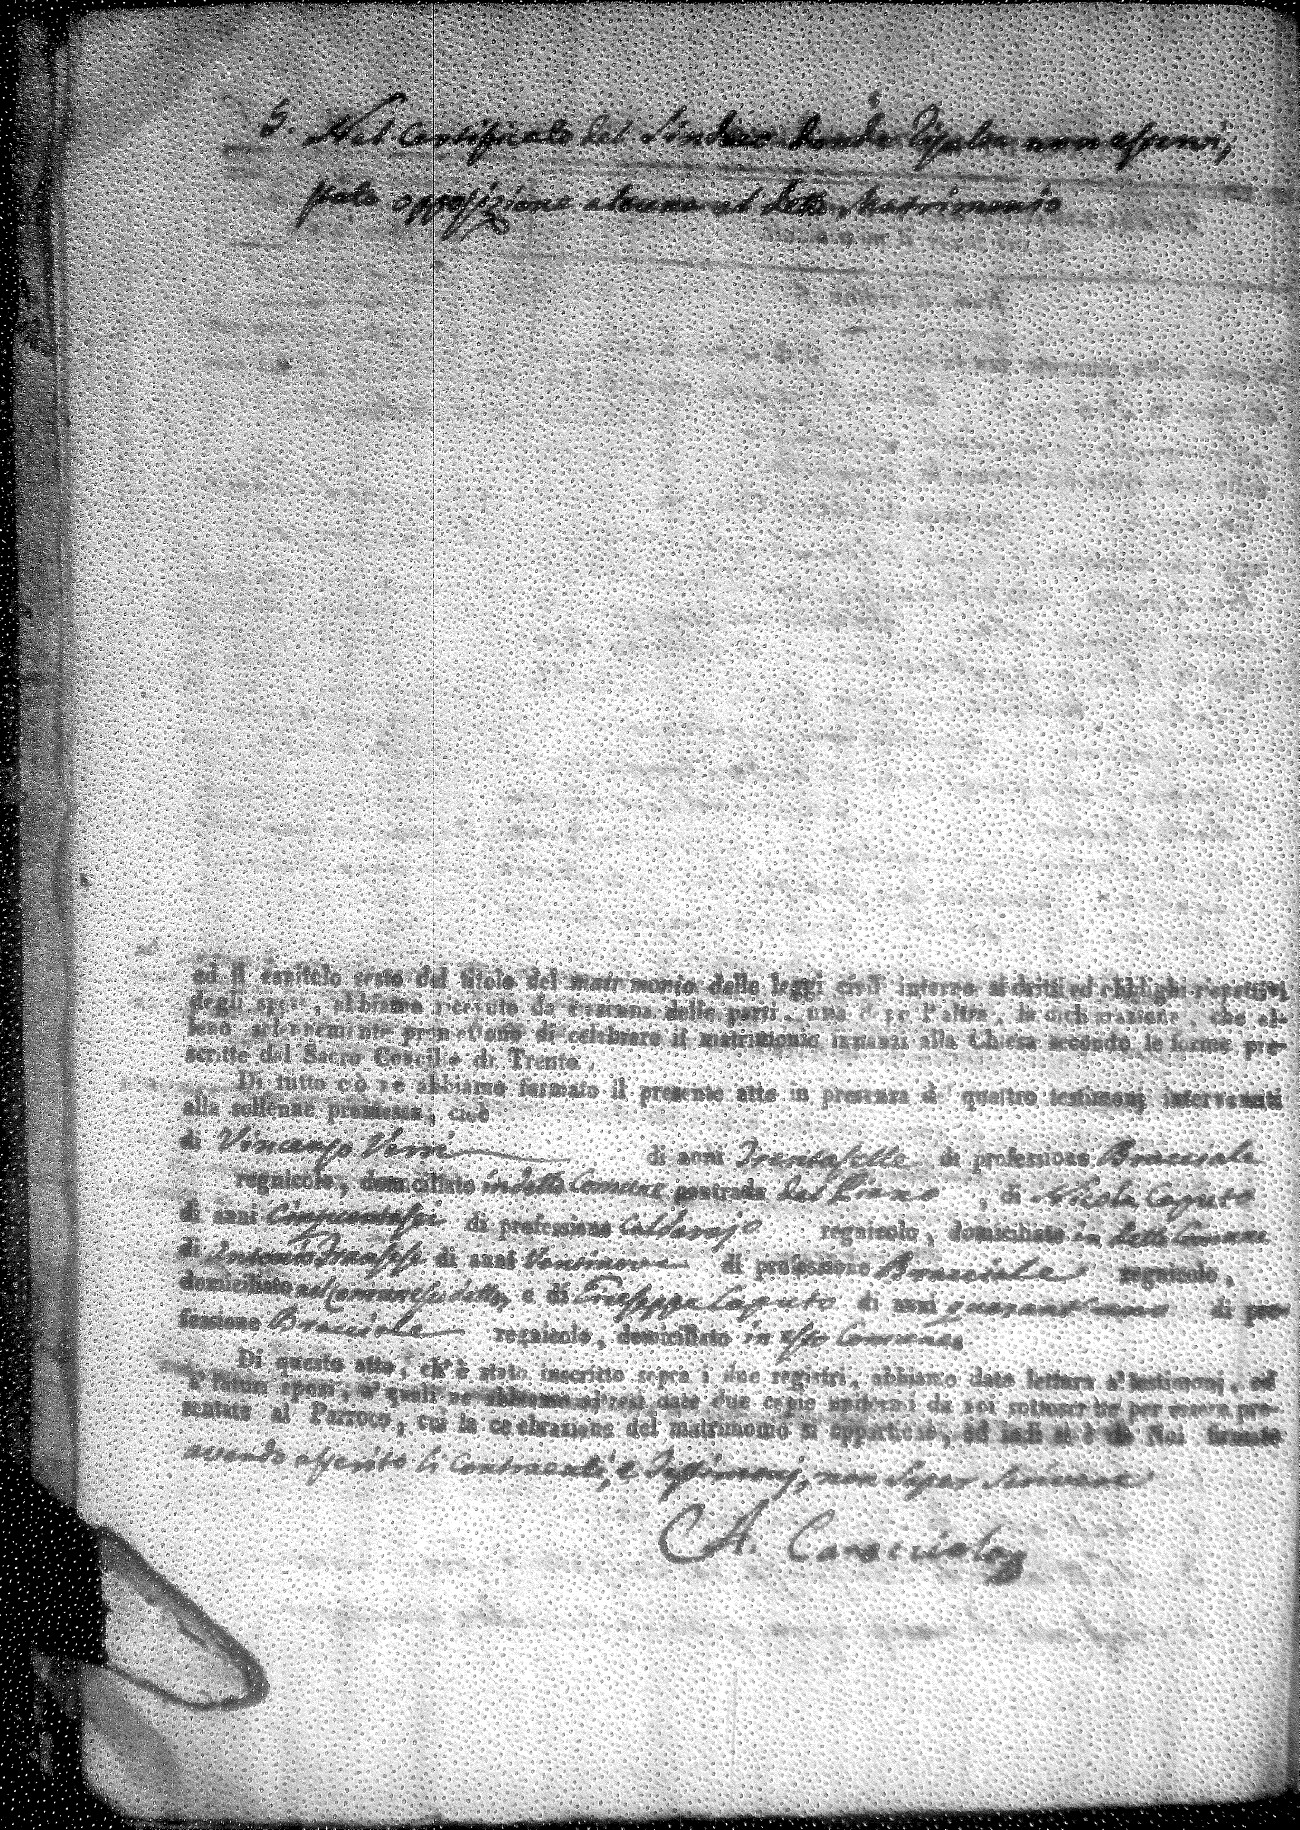 5. Nel Certificato del Sindaco donde risulta non essersi,
fatta opposizione alcuna al detto Matrimonio
ed il capitolo sesto del titolo del matrimonio delle leggi civili intorno ai dritti ed obblighi rispettivi
degli sposi, abbiamo ricevuto da ciascuna delle parti, una dopo l'altra, la dichiarazione, che el-
leno solennemente promettono di celebrare il matrimonio innanzi alla Chiesa secondo le forme pre-
scritte dal Sacro Concilio di Trento.
Di tutto ciò ne abbiamo formato il presente atto in presenza de' quattro testimonj intervenuti
alla sollenne promessa, cioè
di Vincenzo di anni Trentasette di professione Bracciale
regnicolo, domiciliato in detto Comune contrada del Piano, di Nicola Caputo
di anni Cinquantasei di professione Caldarajo regnicolo, domiciliato in detto Comune
di Antonio di anni di professione Bracciale regnicolo,
domiciliato nel Comune sudetto, e di Giuseppe Caputo di anni quarant'uno di pro-
fessione Bracciale regnicolo, domiciliato in esso Comune
Di questo atto, ch'è stato inscritto sopra i due registri, abbiamo dato lettura a' testimonj, ed
a' futuri sposi, a' quali ne abbiamo altresì date due copie uniformi da noi sottoscritte per essere pre-
sentate al Parroco, cui la celebrazione del matrimonio si appartiene, ed indi si è da Noi firmato
avendo asserito li Contraenti, e Testimonj, non saper scrivere
A. Caracciolo